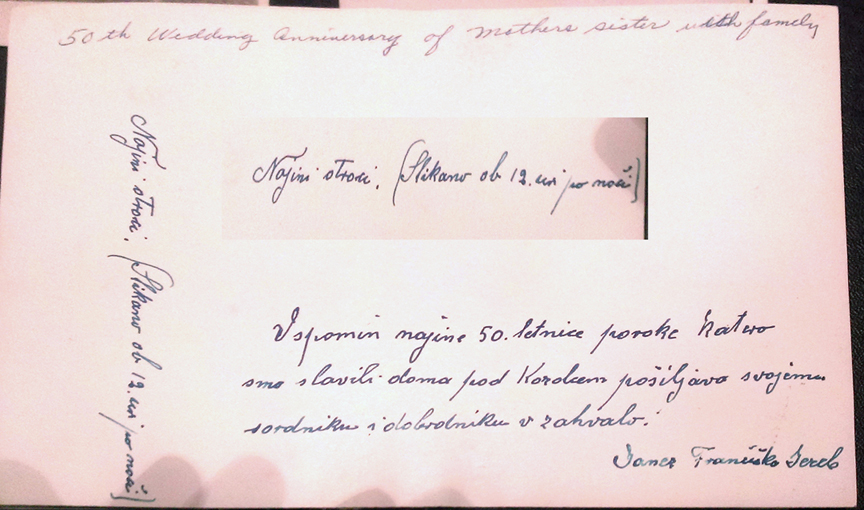 50th Wedding Anniversary of Mothers sister with family
Najini otroci. (Slikano ob 12. uri po noči)
Najini otroci. (Slikano ob 12. uri po noči)
Vspomin najine 50. letnice poroke katero
smo slavili doma pod pošiljava svojemu
sorodniku i dobrodniku v zahvalo.
Janez Frančiška Jereb